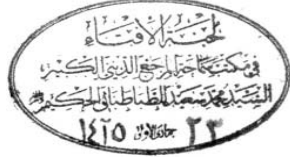 لجنة الافتاء
في مكتب سماحة المرجع الديني الكبير
السيد محمد سعيد الطباطبائي الحكيم
٢٣ جمادى الأولى ١٤١٥